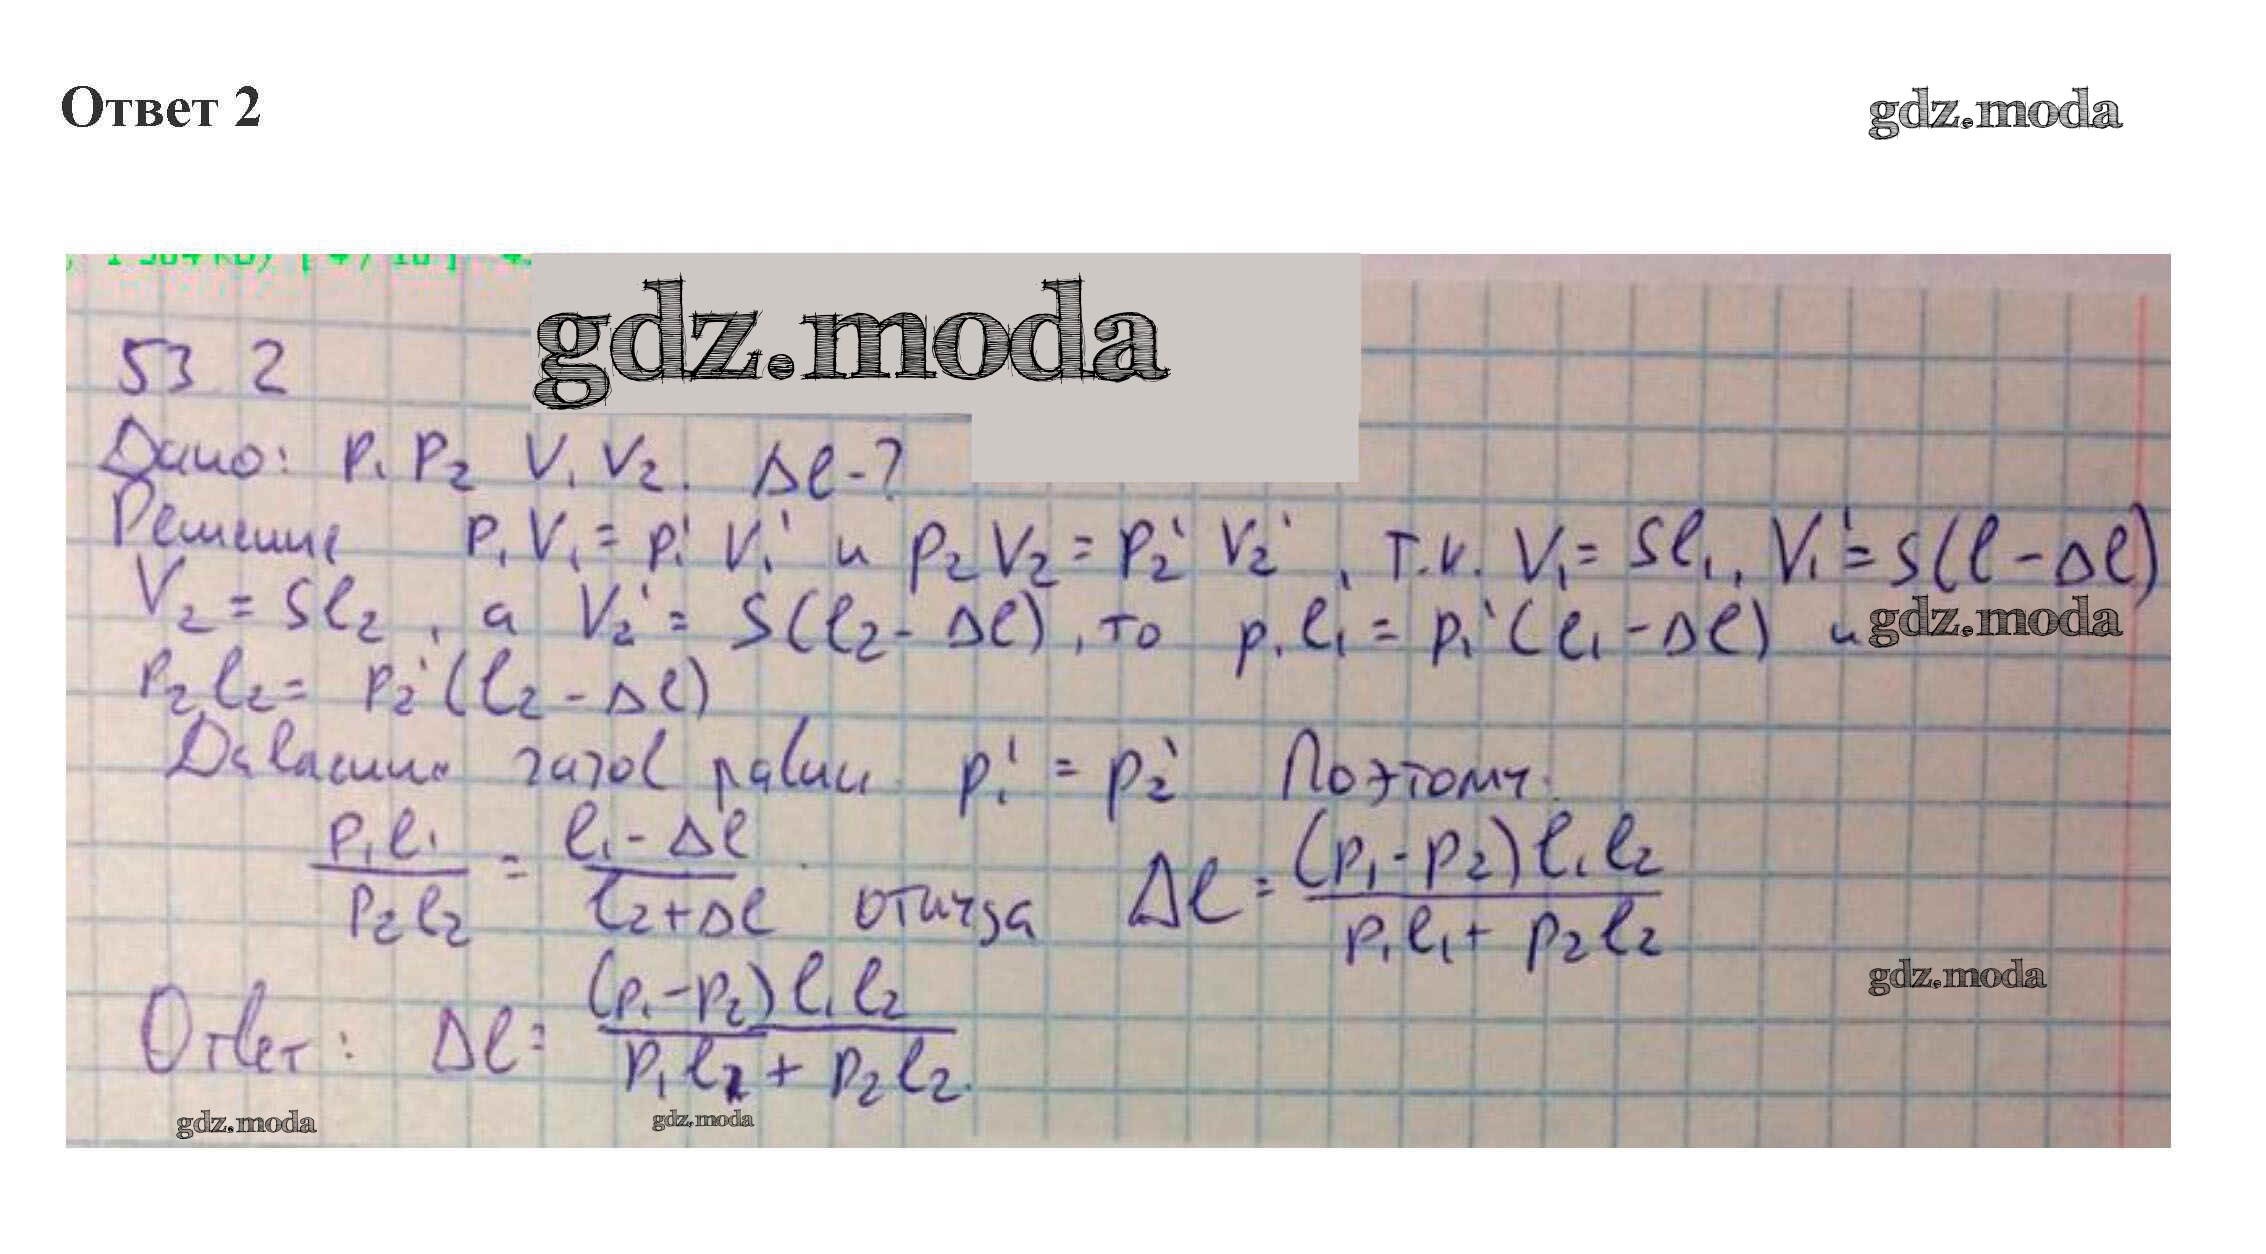 Ответ 2
gdz.moda
gdz.moda
53 2
Дано: p₁ p₂ V₁ V₂. Δl-?
Решение p₁V₁ = p₁' V₁' и p₂V₂ = p₂' V₂', т.к. V₁ = Sl₁, V₁' = S(l - Δl)
V₂ = Sl₂, а V₂' = S(l₂ - Δl), то p₁l₁ = p₁'(l₁ - Δl) и
gdz.moda
p₂l₂ = p₂'(l₂ - Δl)
Давление газов равны p₁' = p₂' Поэтому:
p₁l₁/p₂l₂ = (l₁ - Δl)/(l₂ + Δl) откуда Δl = (p₁ - p₂)l₁l₂/(p₁l₁ + p₂l₂)
gdz.moda
Ответ: Δl = (p₁ - p₂)l₁l₂/(p₁l₁ + p₂l₂).
gdz.moda
gdz.moda